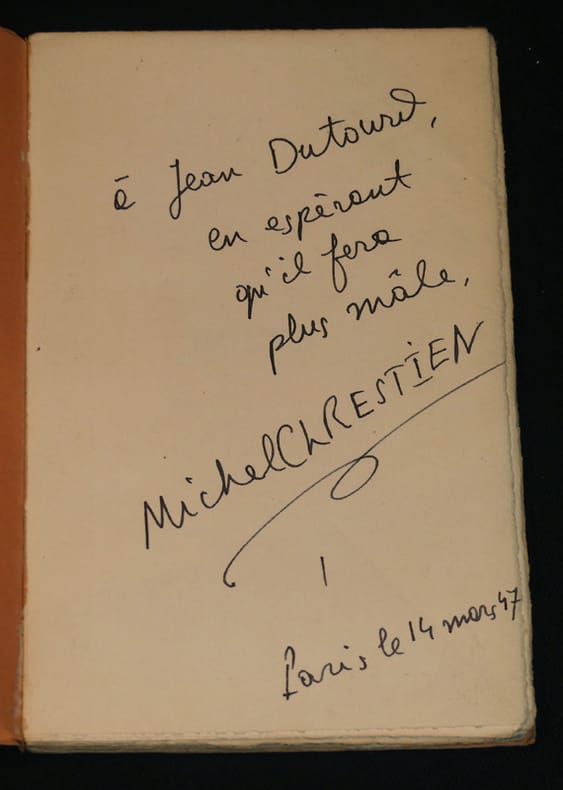 à Jean Dutourd,
en espérant
qu'il fera
plus mâle,
Michel CHRESTIEN
Paris le 14 mars 47